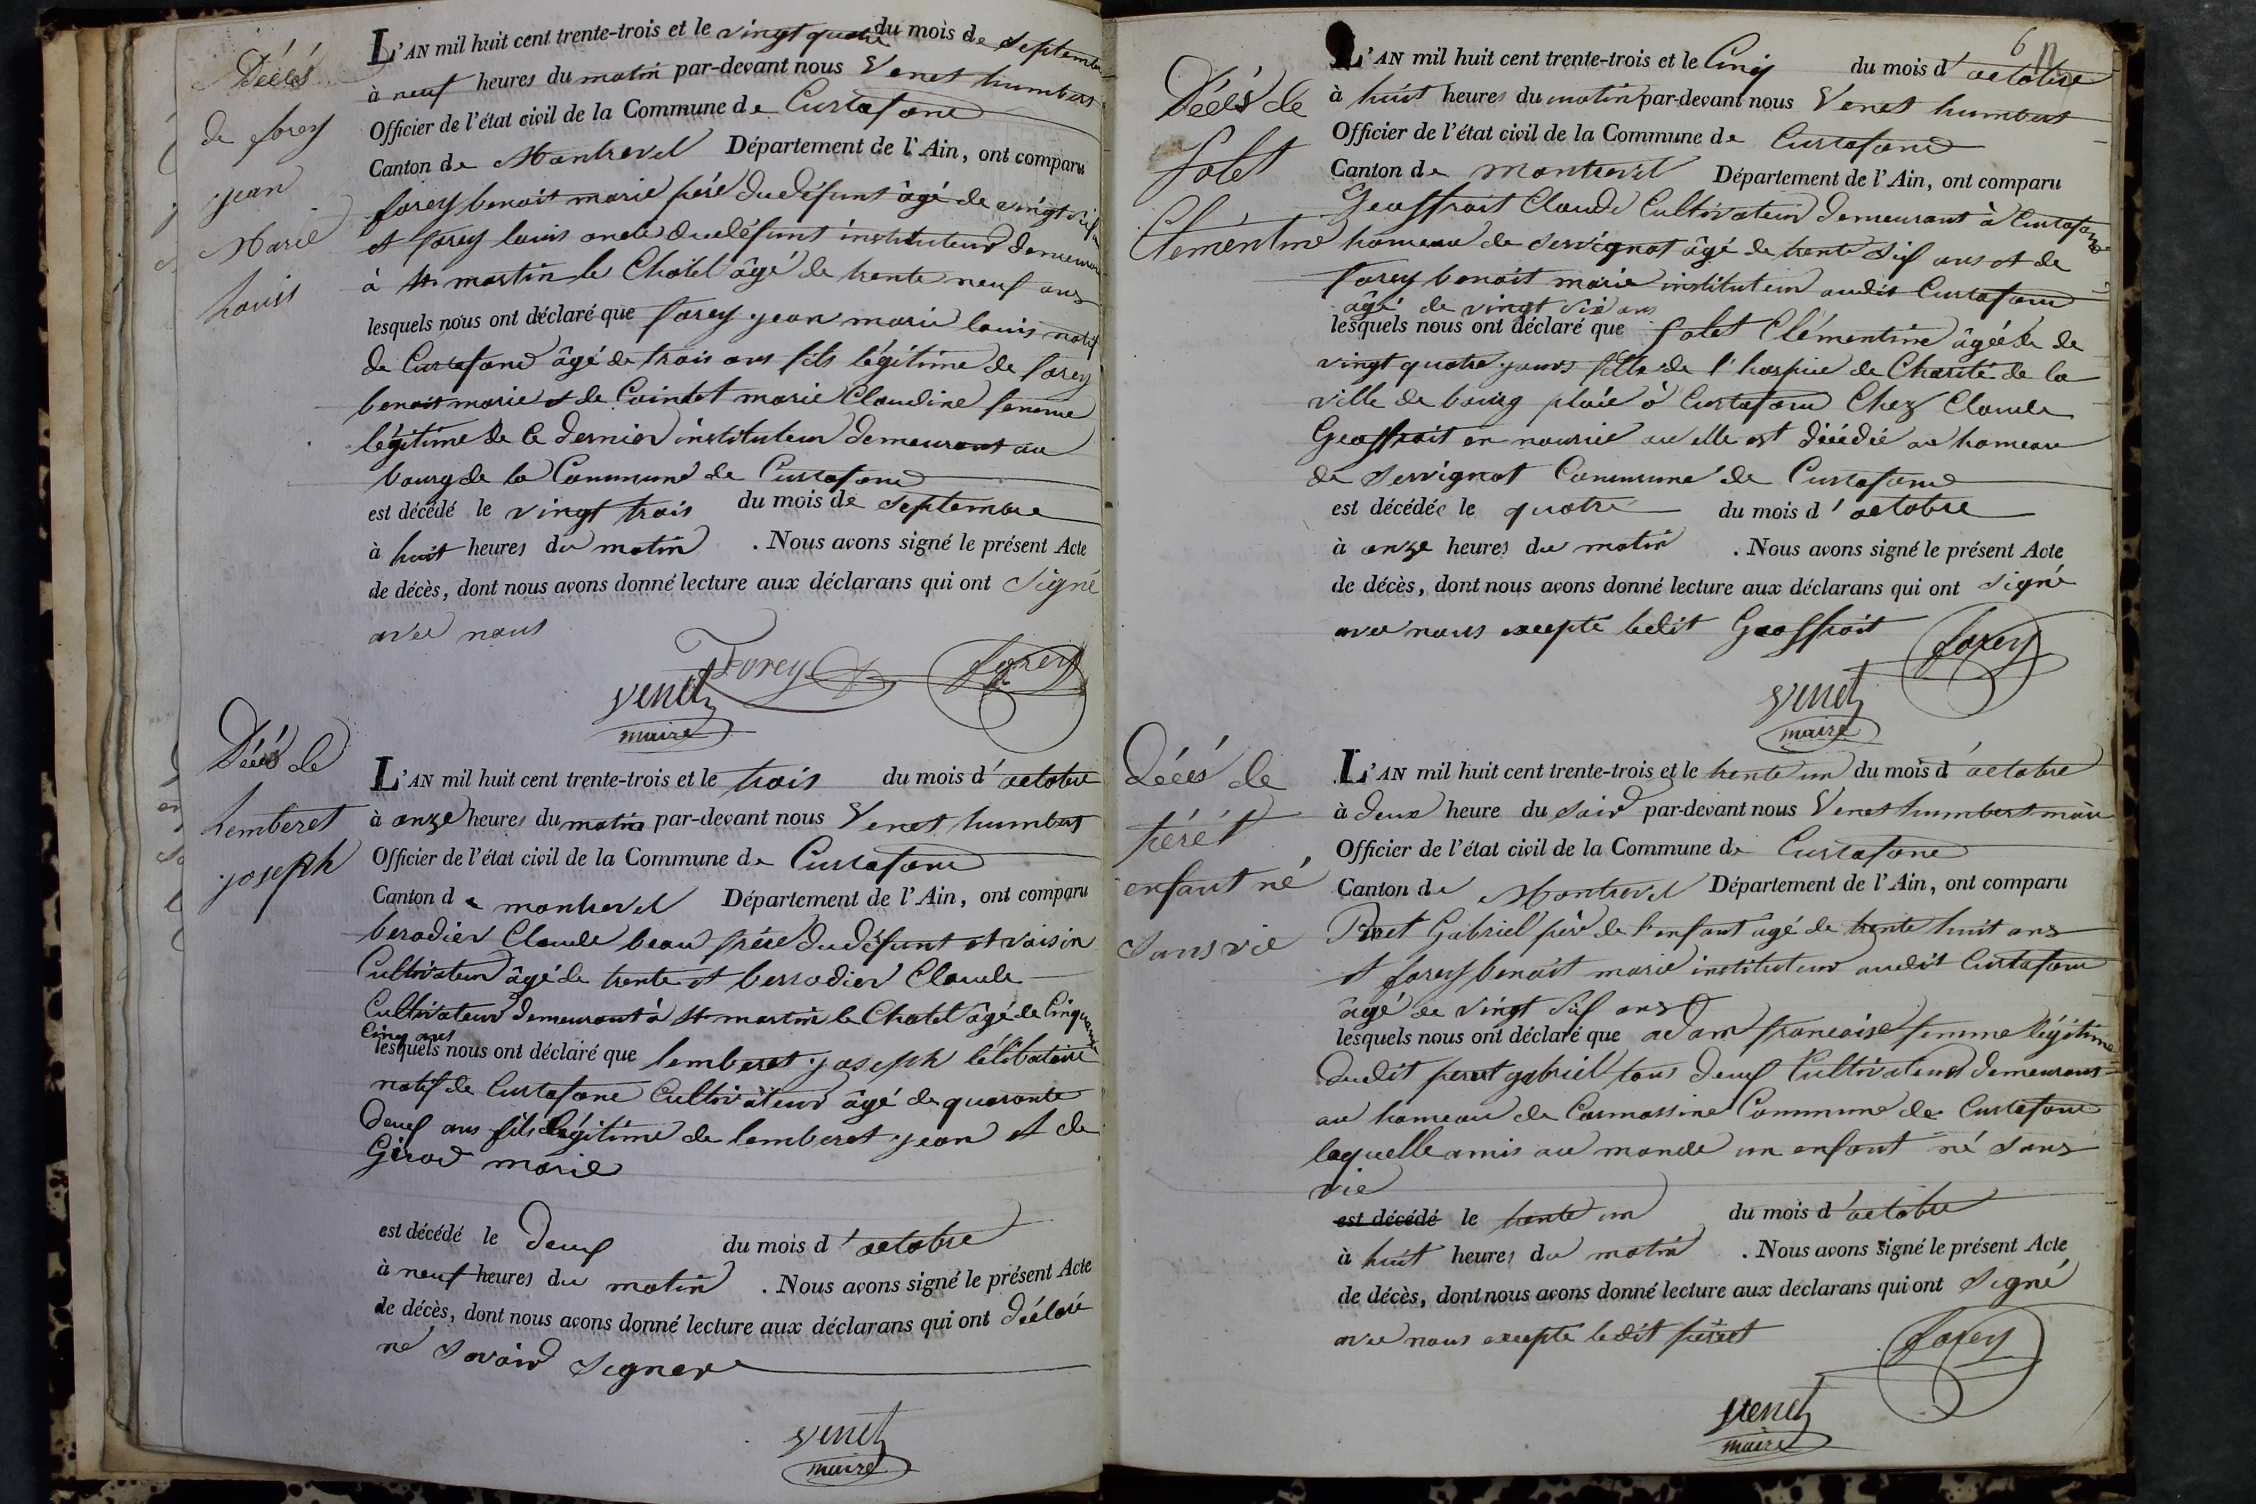 Décès
de forey
jean
Marie
Louis
L'AN mil huit cent trente-trois et le vingt quatre du mois de Septembre
à neuf heures du matin par-devant nous Venet humbert
Officier de l'état civil de la Commune de Curtafond
Canton de Montrevel Département de l'Ain, ont comparu
forey benoit marie père du défunt âgé de vingt six
et forey louis oncle du défunt instituteur demeurant
à st martin le Chatel âgé de trente neuf ans
lesquels nous ont déclaré que forey jean marie louis natif
de Curtafond âgé de trois ans fils légitime de forey
benoit marie et de Cointet marie Claudine femme
légitime de ce dernier instituteur demeurant au
bourg de la Commune de Curtafond
est décédé le vingt trois du mois de septembre
à huit heures du matin . Nous avons signé le présent Acte
de décès, dont nous avons donné lecture aux déclarans qui ont Signé
avec nous
Forey forey
Venet
maire
Décès de
Lemberet
joseph
L'AN mil huit cent trente-trois et le trois du mois d'octobre
à onze heures du matin par-devant nous Venet humbert
Officier de l'état civil de la Commune de Curtafond
Canton de montrevel Département de l'Ain, ont comparu
berodier Claude beau frère du défunt et voisin
Cultivateur âgé de trente et berrodier Claude
Cultivateur demeurant à st martin le Chatel âgé de Cinquante
Cinq ans
lesquels nous ont déclaré que lemberet joseph Célibataire
natif de Curtafond Cultivateur âgé de quarante
deux ans fils légitime de lemberet jean et de
Girod marie
est décédé le deux du mois d'octobre
à neuf heures du matin . Nous avons signé le présent Acte
de décès, dont nous avons donné lecture aux déclarans qui ont déclaré
ne Savoir Signer
Venet
maire
6
Décès de
folet
Clémentine
L'AN mil huit cent trente-trois et le Cinq du mois d'octobre
à huit heures du matin par-devant nous Venet humbert
Officier de l'état civil de la Commune de Curtafond
Canton de montrevel Département de l'Ain, ont comparu
Geoffroit Claude Cultivateur demeurant à Curtafond
hameau de servignat âgé de trente Six ans et de
forey benoit marie instituteur audit Curtafond
âgé de vingt Six ans
lesquels nous ont déclaré que folet Clémentine âgée de
vingt quatre jours fille de l'hospice de Charité de la
ville de bourg placée à Curtafond Chez Claude
Geoffroit en nourice ou elle est décédée au hameau
de Servignat Commune de Curtafond
est décédée le quatre du mois d'octobre
à onze heures du matin . Nous avons signé le présent Acte
de décès, dont nous avons donné lecture aux déclarans qui ont Signé
avec nous excepté ledit Geoffroit
forey
Venet
maire
Décès de
péret
enfant né
Sans vie
L'AN mil huit cent trente-trois et le trente un du mois d'octobre
à deux heure du Soir par-devant nous Venet humbert maire
Officier de l'état civil de la Commune de Curtafond
Canton de Montrevel Département de l'Ain, ont comparu
Péret Gabriel père de l'enfant âgé de trente huit ans
et forey benoit marie instituteur audit Curtafond
âgé de vingt Six ans
lesquels nous ont déclaré que adam francoise femme légitime
dudit peret gabriel tous deux Cultivateurs demeurans
au hameau de Cormassine Commune de Curtafond
laquelle a mis au monde un enfant né Sans
vie
est décédé le trente un du mois d'octobre
à huit heures du matin . Nous avons signé le présent Acte
de décès, dont nous avons donné lecture aux déclarans qui ont Signé
avec nous excepté ledit péret
forey
Venet
maire